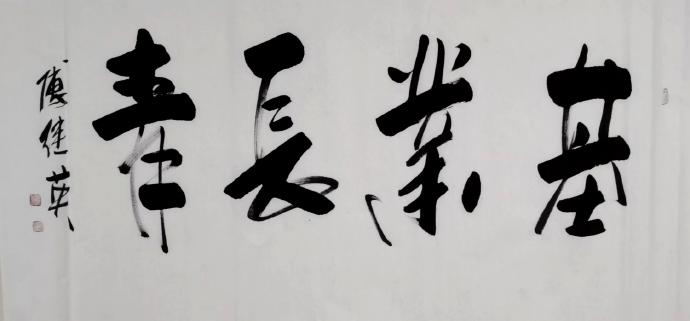 基業長青
傅繼英